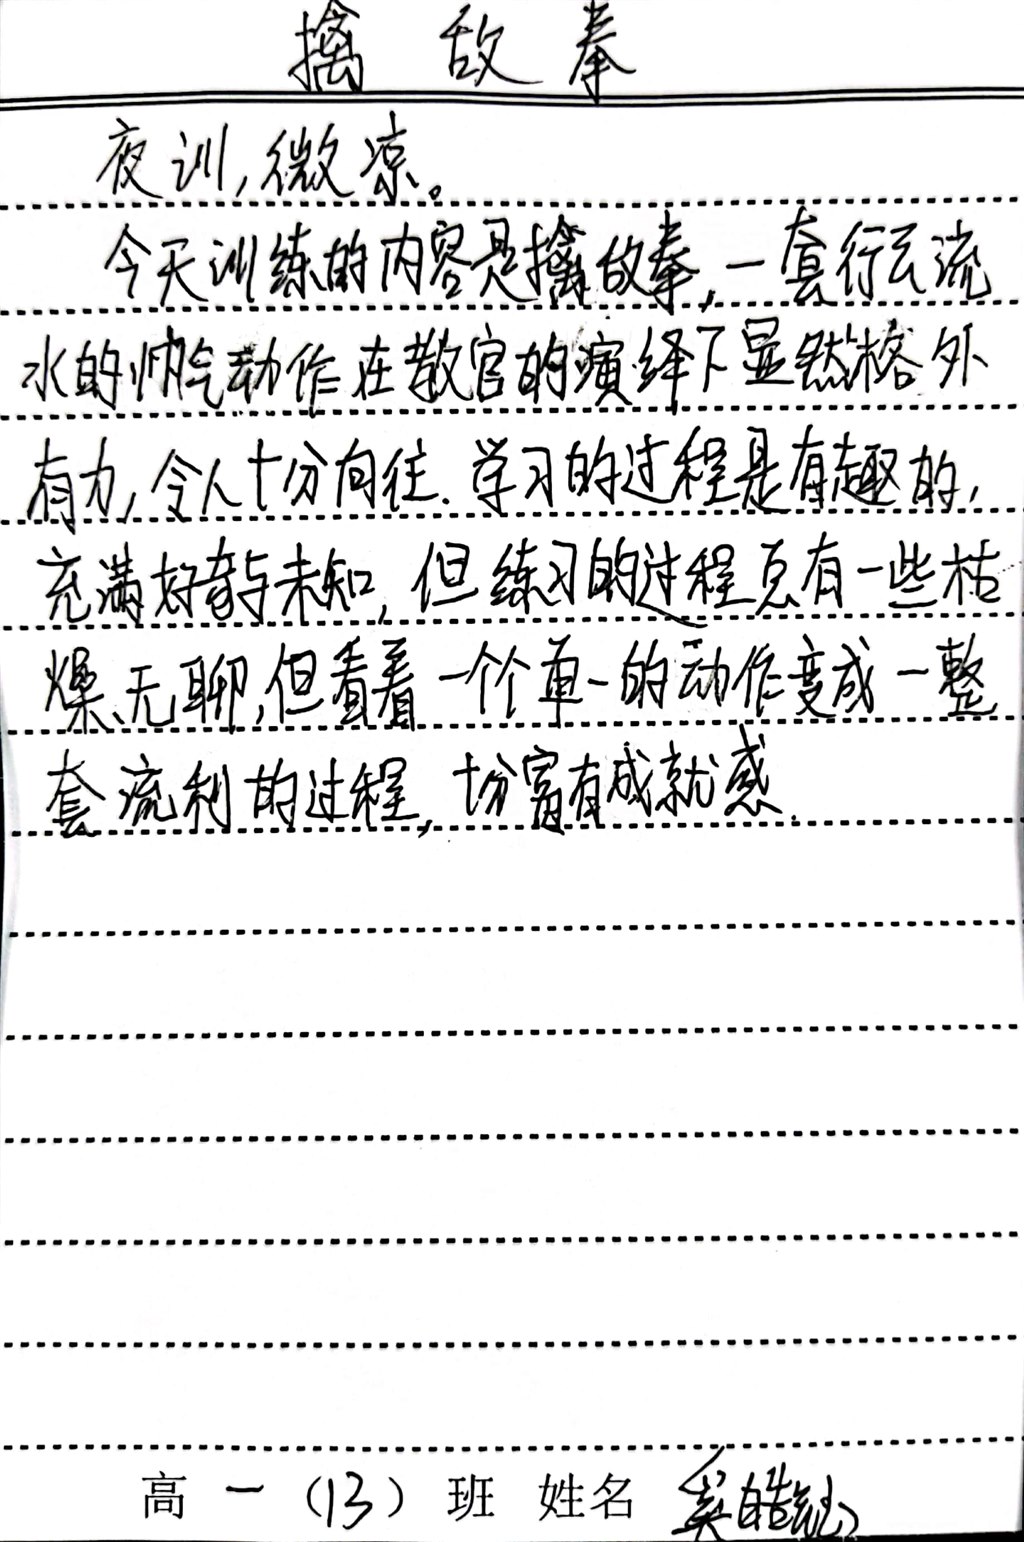 擒敌拳
夜训,微凉。
今天训练的内容是擒敌拳,一套行云流
水的帅气动作在教官的演绎下显然格外
有力,令人十分向往.学习的过程是有趣的,
充满好奇与未知,但练习的过程总有一些枯
燥、无聊,但看着一个个单一的动作变成一整
套流利的过程,十分富有成就感.
高一(13)班 姓名